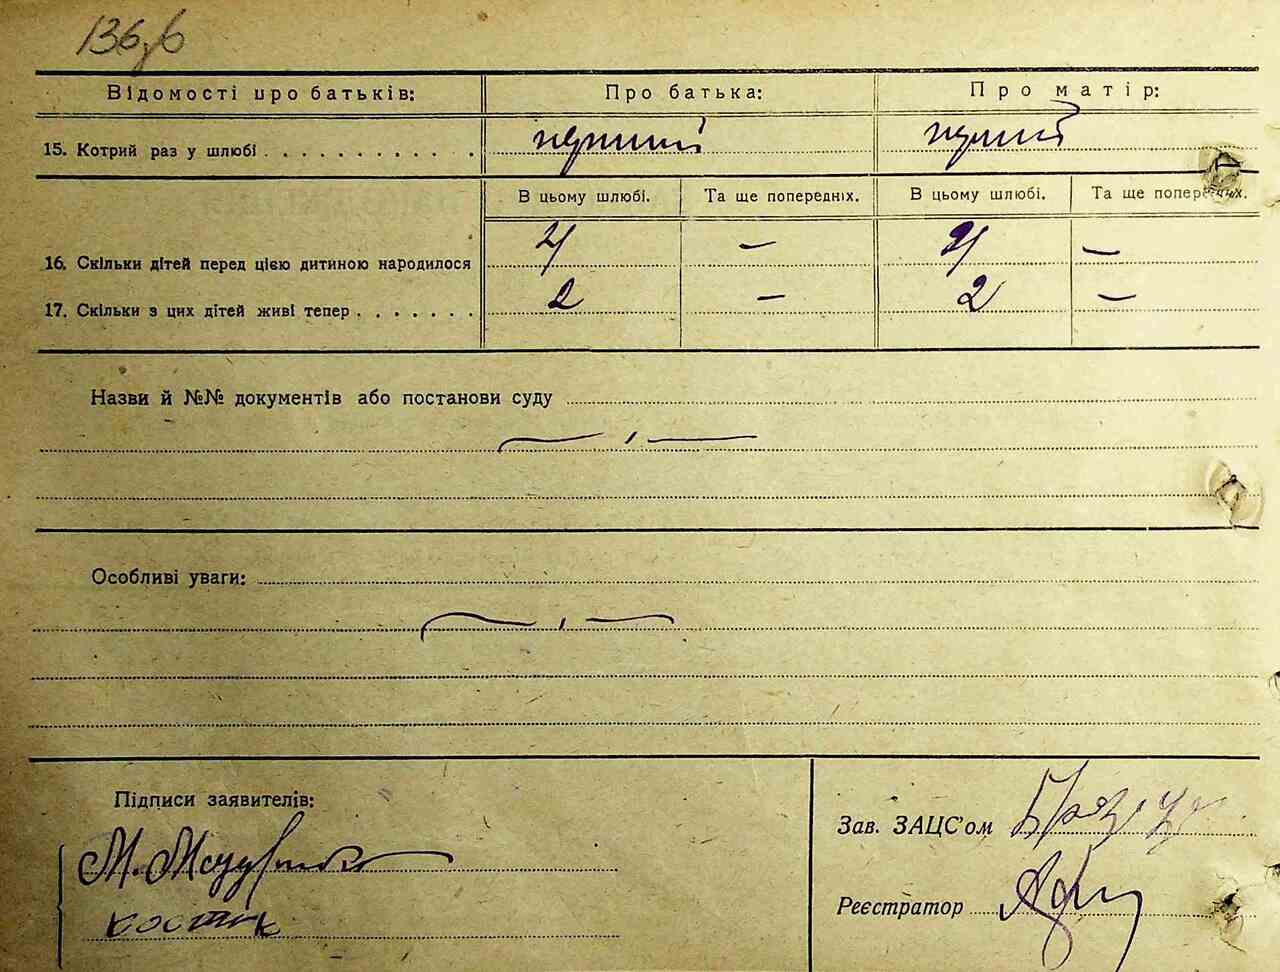 136
Відомості про батьків: Про батька: Про матір:
15. Котрий раз у шлюбі . . . . . . . . . . . перший перший
В цьому шлюбі. Та ще попередніх. В цьому шлюбі. Та ще попередніх.
16. Скільки дітей перед цією дитиною народилося — —
17. Скільки з цих дітей живі тепер . . . . . . . 2 — 2 —
Назви й №№ документів або постанови суду
Особливі уваги:
Підписи заявителів:
М.
Костик
Зав. ЗАЦС'ом
Реєстратор